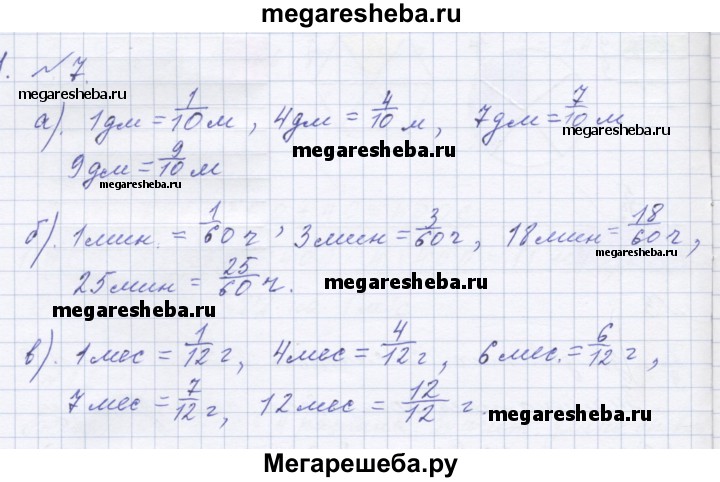 megaresheba.ru
1. №7.
megaresheba.ru
а). 1дм = 1/10 м, 4дм = 4/10 м, 7дм = 7/10 м
megaresheba.ru
megaresheba.ru
9дм = 9/10 м
megaresheba.ru
б). 1мин. = 1/60 ч, 3мин = 3/60 ч, 18мин = 18/60 ч,
megaresheba.ru
25мин = 25/60 ч.
megaresheba.ru
megaresheba.ru
в). 1мес = 1/12 г, 4мес = 4/12 г, 6мес. = 6/12 г,
7мес = 7/12 г, 12мес = 12/12 г
megaresheba.ru
Мегарешеба.ру